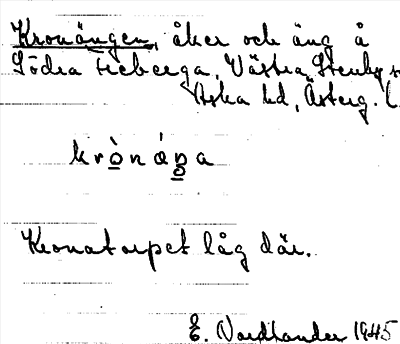 Kronängen, åker och äng å
Södra Freberga, Västra Stenby s
Aska hd, Österg. l
Kronatorpet låg där.
E. Nordlander 1945